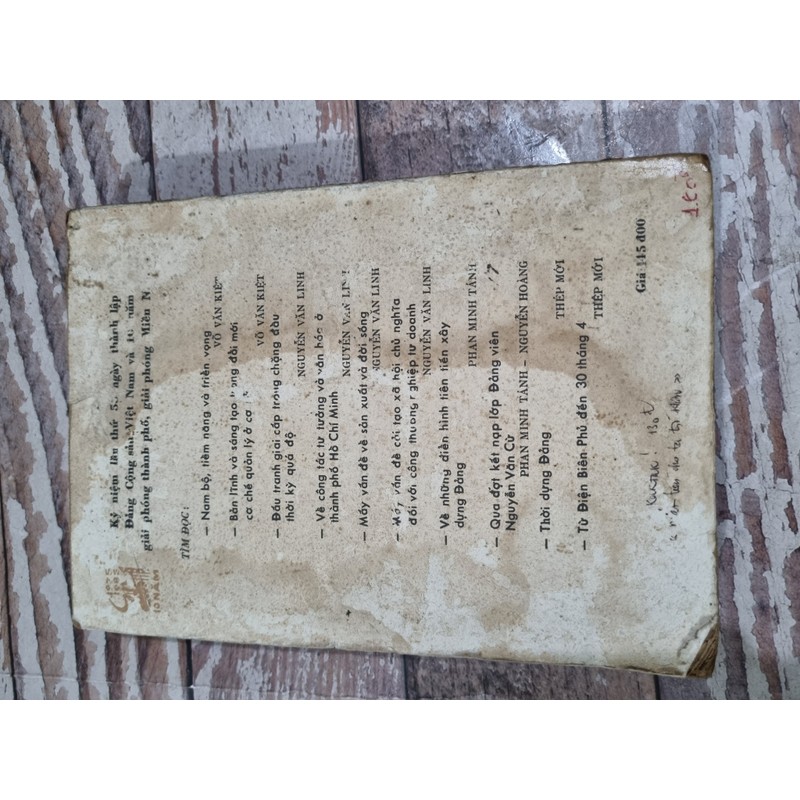 1975
1985
10 NĂM
Kỷ niệm lần thứ 55 ngày thành lập
Đảng Cộng sản Việt Nam và 10 năm
giải phóng thành phố, giải phóng Miền N
TÌM ĐỌC:
— Nam bộ, tiềm năng và triển vọng
VÕ VĂN KIỆT
— Bản lĩnh và sáng tạo trong đổi mới
cơ chế quản lý ở cơ
VÕ VĂN KIỆT
— Đấu tranh giai cấp trong chặng đầu
thời kỳ quá độ
NGUYỄN VĂN LINH
— Về công tác tư tưởng và văn hóa ở
thành phố Hồ Chí Minh
NGUYỄN VĂN LINH
— Mấy vấn đề về sản xuất và đời sống
NGUYỄN VĂN LINH
— Mấy vấn đề cải tạo xã hội chủ nghĩa
đối với công thương nghiệp tư doanh
NGUYỄN VĂN LINH
— Về những điển hình tiên tiến xây
dựng Đảng
PHAN MINH TÁNH
— Qua đợt kết nạp lớp Đảng viên
Nguyễn Văn Cừ
PHAN MINH TÁNH – NGUYỄN HOÀNG
— Thời dựng Đảng
THÉP MỚI
— Từ Điện Biên Phủ đến 30 tháng 4
THÉP MỚI
Giá 145đ00